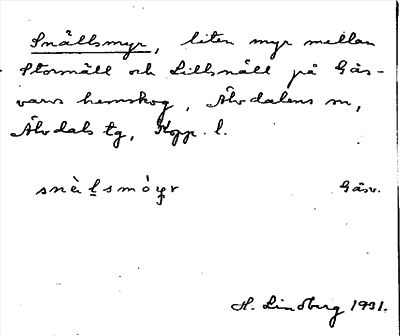 Snällsmyr, liten myr mellan
Stornäll och Lillsnäll på Gås-
varv hemskog, Älvdalens sn,
Älvdals tg, Kopp. l.
Gåsv.
H. Lindberg 1931.